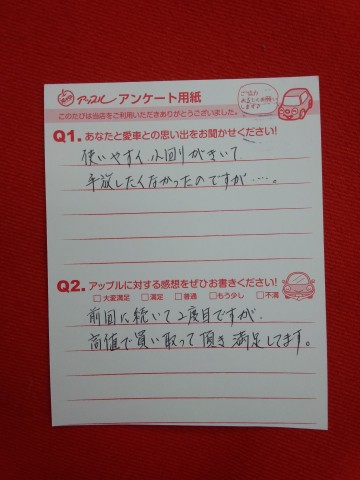 アップル アンケート用紙
このたびは当店をご利用いただきありがとうございました。
Q1. あなたと愛車との思い出をお聞かせください!
使いやすく、小回りがきいて
手放したくなかったのですが…。
Q2. アップルに対する感想をぜひお書きください!
□大変満足 □満足 □普通 □もう少し □不満
前回に続いて2度目ですが、
高値で買い取って頂き満足してます。